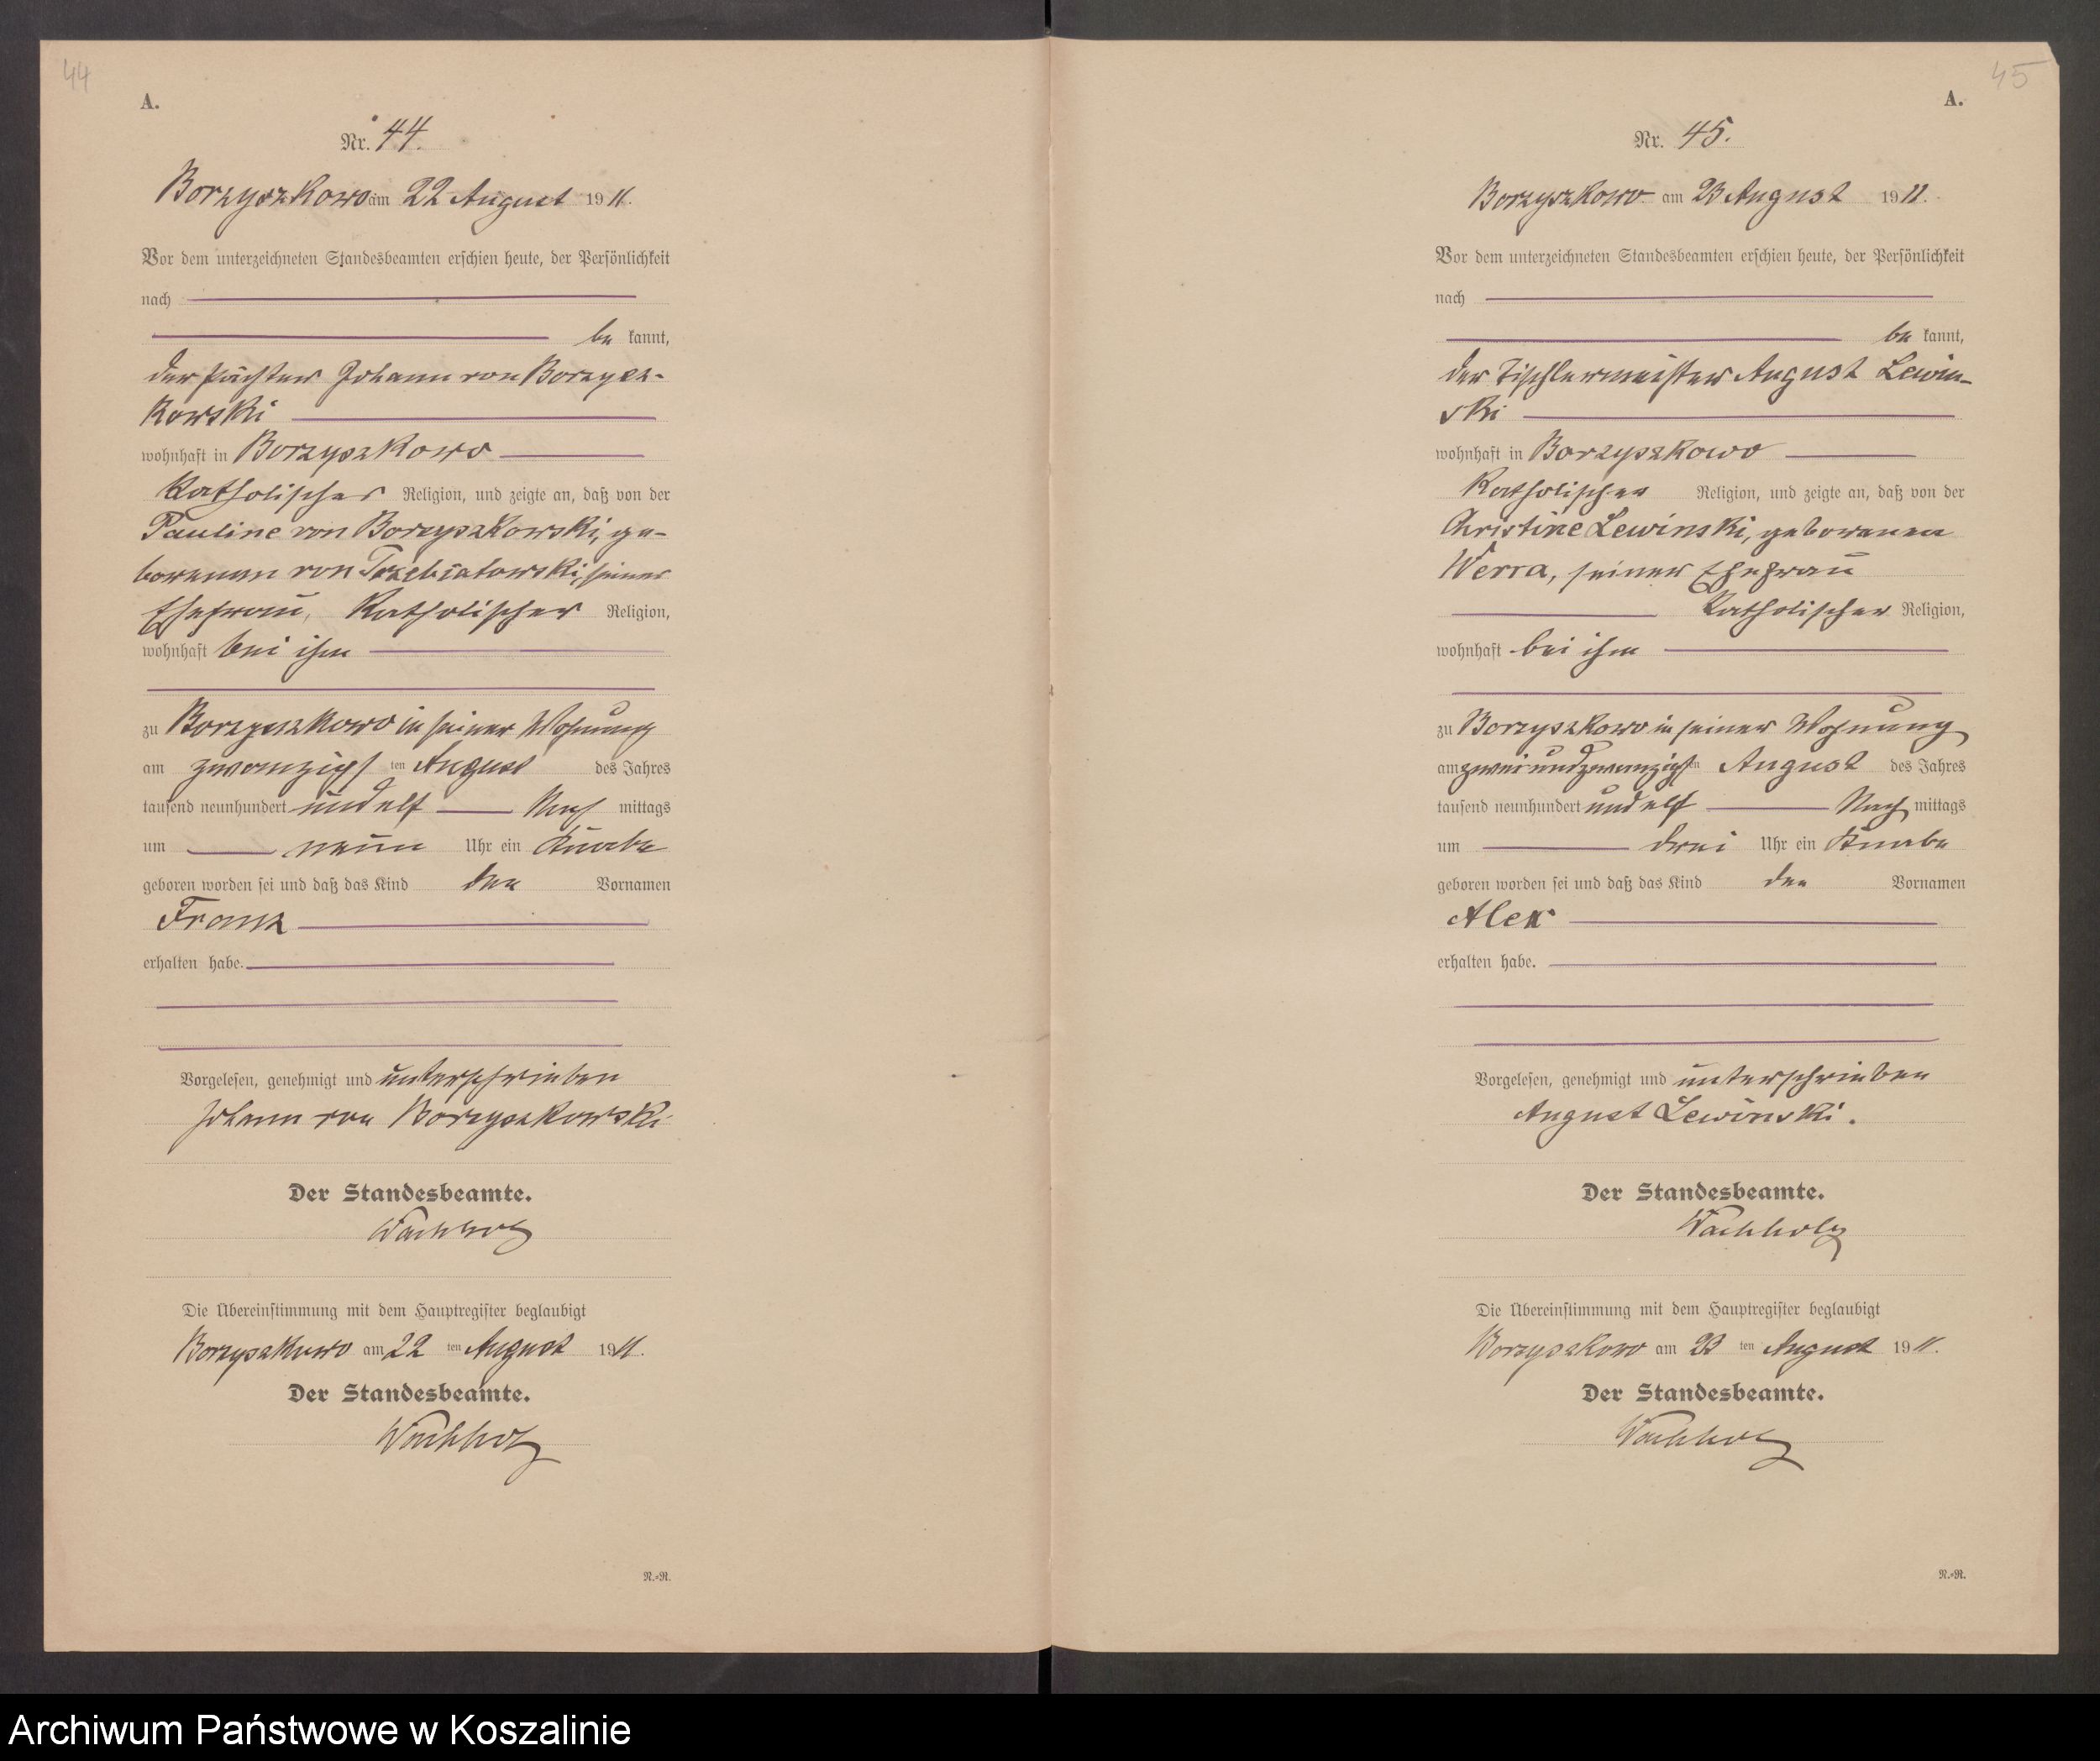 44
A.
Nr. 44.
Borzyszkowo am 22 August 1911.
Vor dem unterzeichneten Standesbeamten erschien heute, der Persönlichkeit
nach
be kannt,
der Pächter Johann von Borzysz-
kowski
wohnhaft in Borzyszkowo
katholischer Religion, und zeigte an, daß von der
Pauline von Borzyszkowski, ge-
borenen von Trzebiatowski, seiner
Ehefrau, katholischer Religion,
wohnhaft bei ihm
zu Borzyszkowo in seiner Wohnung
am zwanzigsten August des Jahres
tausend neunhundert und elf Nachmittags
um neun Uhr ein Knabe
geboren worden sei und daß das Kind den Vornamen
Franz
erhalten habe.
Vorgelesen, genehmigt und unterschrieben
Johann von Borzyszkowski
Der Standesbeamte.
Wachholz
Die Übereinstimmung mit dem Hauptregister beglaubigt
Borzyszkowo am 22 ten August 1911.
Der Standesbeamte.
Wachholz
N.=N.
45
A.
Nr. 45.
Borzyszkowo am 23 August 1911.
Vor dem unterzeichneten Standesbeamten erschien heute, der Persönlichkeit
nach
be kannt,
der Tischlermeister August Lewin-
ski
wohnhaft in Borzyszkowo
katholischer Religion, und zeigte an, daß von der
Christine Lewinski, geborenen
Werra, seiner Ehefrau
katholischer Religion,
wohnhaft bei ihm
zu Borzyszkowo in seiner Wohnung
am zweiundzwanzigsten August des Jahres
tausend neunhundert und elf Nachmittags
um drei Uhr ein Knabe
geboren worden sei und daß das Kind den Vornamen
Alex
erhalten habe.
Vorgelesen, genehmigt und unterschrieben
August Lewinski.
Der Standesbeamte.
Wachholz
Die Übereinstimmung mit dem Hauptregister beglaubigt
Borzyszkowo am 23 ten August 1911.
Der Standesbeamte.
Wachholz
N.=N.
Archiwum Państwowe w Koszalinie